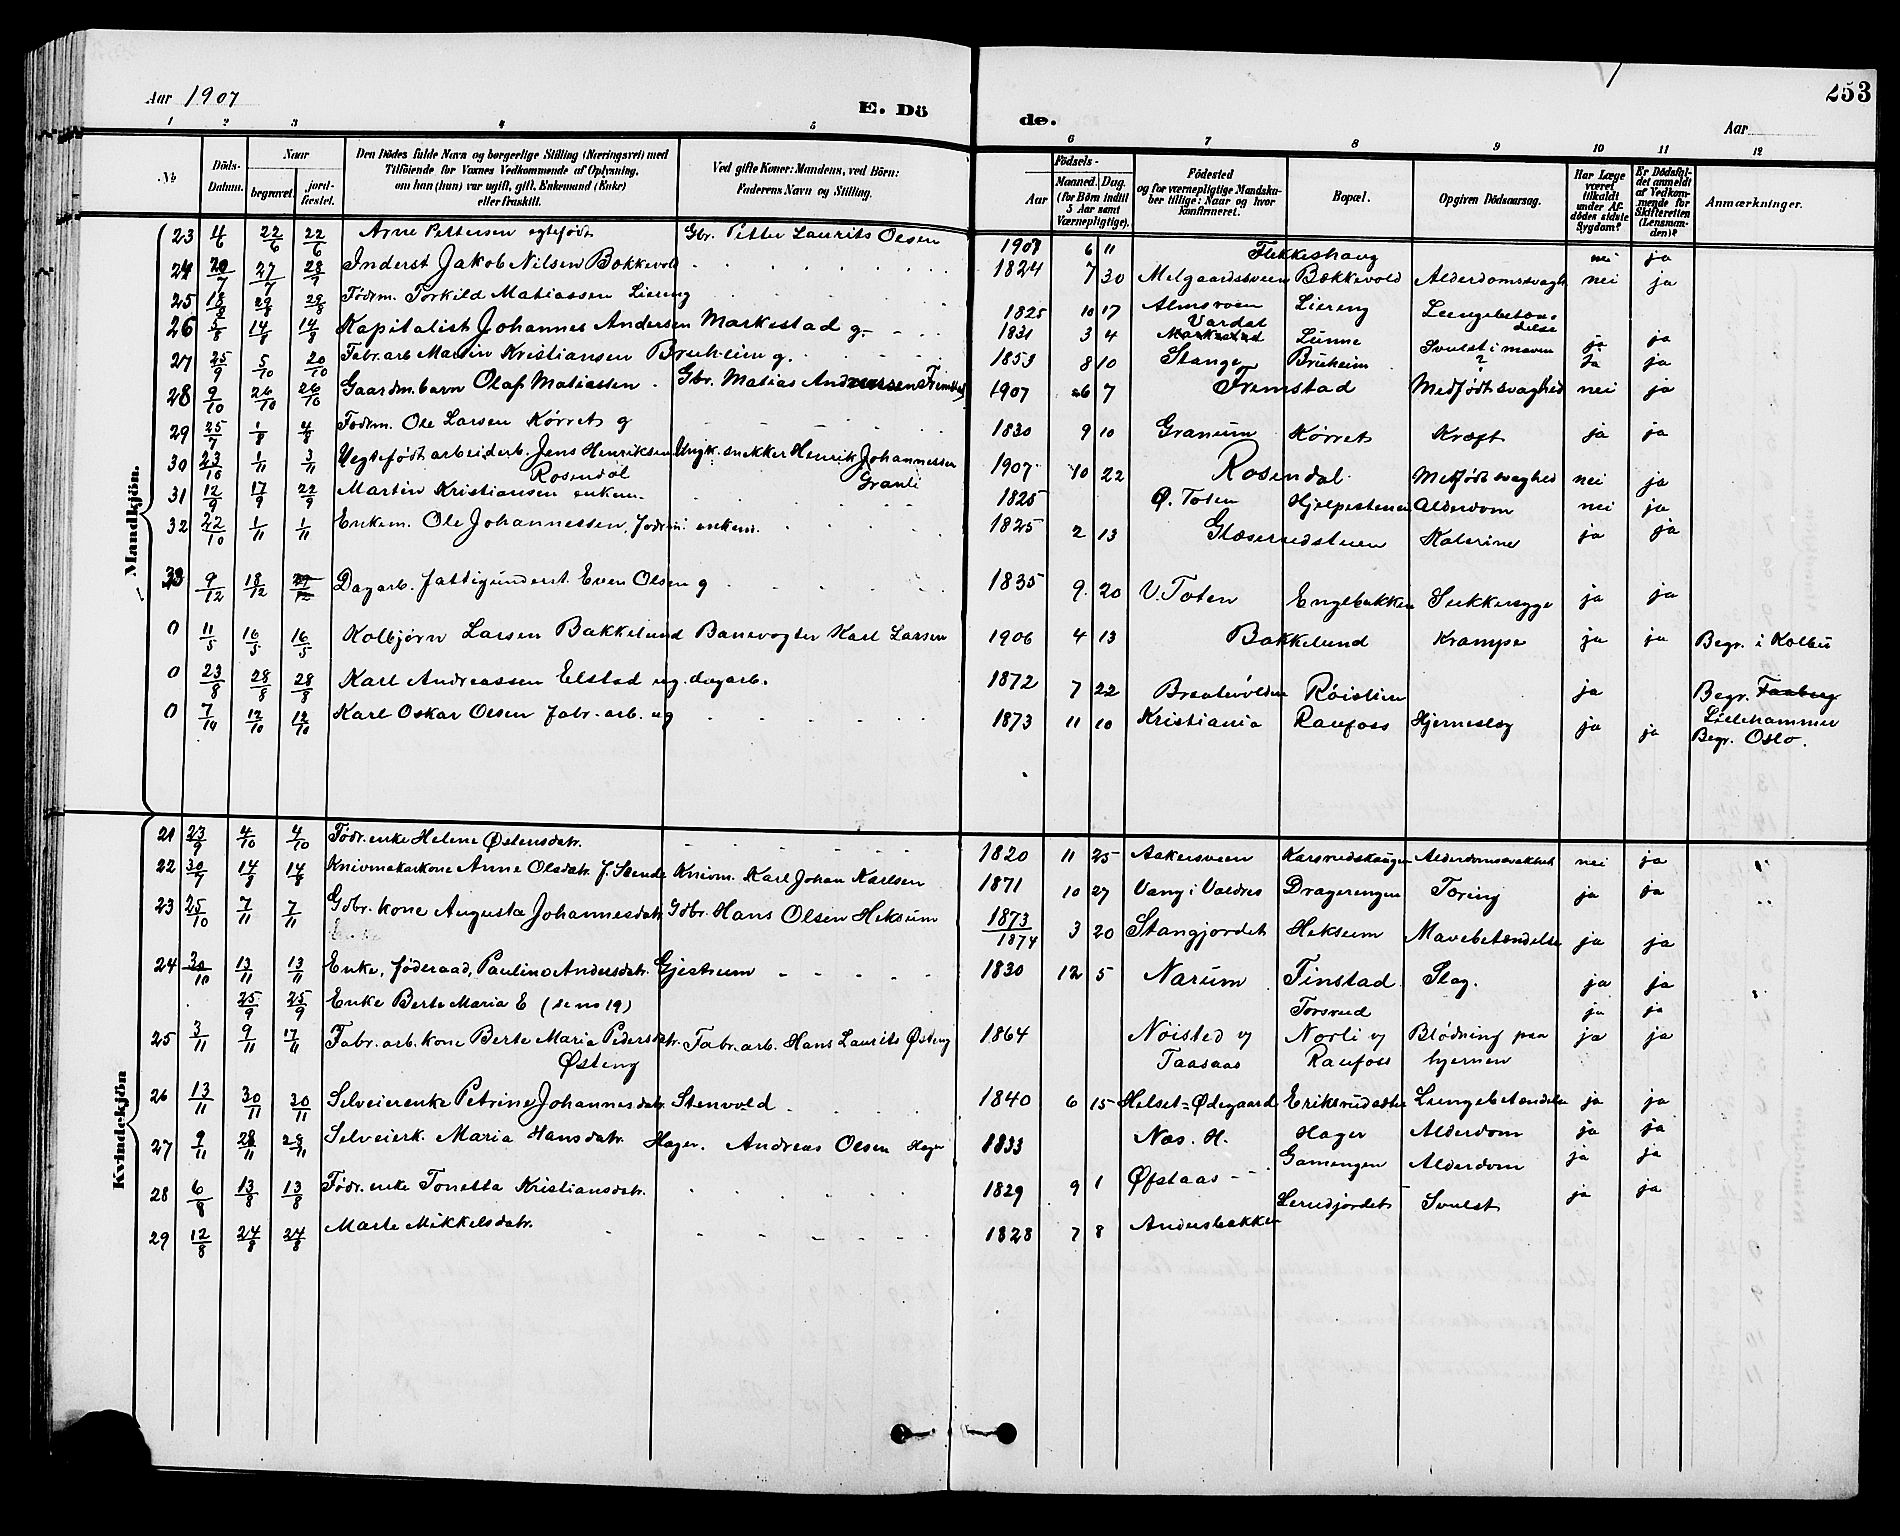 Aar 1907 E. Dö de. Aar 253
1 2 3 4 5 6 7 8 9 10 11 12
No Döds-Datum. Naar begravet. jord-fæstet. Den Dödes fulde Navn og borgerlige Stilling (Næringsvei) med Tilföiende for Voxnes Vedkommende af Oplysning, om han (hun) var ugift, gift, Enkemand (Enke) eller fraskilt. Ved gifte Koner: Mandens, ved Börn: Faderens Navn og Stilling. Födsels- Aar Maaned. Dag. (for Börn indtil 5 Aar samt Værnepligtige). Födested og for værnepligtige Mandskaber tillige: Naar og hvor konfirmeret. Bopæl. Opgiven Dödsaarsag. Har Læge været tilkaldt under Afdödes sidste Sygdom? Er Dödsfaldet anmeldt af Vedkommende for Skifteretten (Lensmanden)? Anmærkninger.
Mandkjön.
23 22/6 22/6 Arne Pettersen egtefödt Gbr. Petter Laurits Olsen 1907 6 11 Flekkeshaug nei ja
24 20/7 27/7 28/7 Inderst Jakob Nilsen Bökkevold 1824 7 30 Melgaardssveen Bækkevold Alderdomssvagh nei ja
25 18/8 29/8 29/8 Födrm. Torkild Matiassen Liereng 1825 10 17 Almsveen Liereng Lungebetæn=
Vardal delse
26 5/8 14/8 14/8 Kapitalist Johannes Andersen Markestad g. 1831 3 4 Markestad Lunne Svulst i maven ja ja
27 25/9 5/10 20/10 Fabr. arb Martin Kristiansen Bruheim g. 1853 8 10 Stange Bruheim ? ja ja
28 9/10 26/10 26/10 Gaardm. barn Olaf Matiassen Gbr. Matias Andreassen Fremstad 1907 6 7 Fremstad Medfödt svaghed nei ja
29 25/7 1/8 4/8 Födrm. Ole Larsen Körret g 1830 9 10 Granum Körret Kræft ja ja
30 23/10 1/11 3/11 Uegtefödt arbeiderb. Jens Henriksen Ungk. snekker Henrik Johannessen 1907 10 22 Rosendal Medfödt svaghed nei ja
Rosendal Granli
31 12/9 17/9 22/9 Martin Kristiansen enkem. 1825 Ø. Toten Hjelpestenen Alderdom nei ja
32 22/10 1/11 1/11 Enkem. Ole Johannessen, födrm. enkem. 1825 2 13 Glæserudsteien Katerine ja ja
33 9/12 18/12 Dagarb. fattigunderst. Even Olsen g 1835 9 20 V. Toten Engebakken Sukkersyge ja ja
0 11/5 16/5 16/5 Kolbjörn Larsen Bakkelund Banevogter Karl Larsen 1906 4 13 Bakkelund Krampe ja ja Begr. i Kolbu
0 23/8 28/8 28/8 Karl Andreassen Elstad ug. dagarb. 1872 7 22 Röistien ja Begr. Faaberg
Lillehammer
0 7/10 12/10 12/10 Karl Oskar Olsen fabr. arb. ug 1873 11 10 Kristiania Raufoss Hjerneslag ja ja Begr. Oslo.
Kvindekjön
21 23/9 4/10 4/10 Födr. enke Helene Østensdatr. 1820 11 25 Aakersveen Karsrudshaugen nei ja
22 30/7 14/8 14/8 Knivmakerkone Anne Olsdatr. f. Stende Knivm. Karl Johan Karlsen 1871 10 27 Vang i Valdres Dragerengen Tæring ja ja
23 25/10 7/11 7/11 Gdbr. kone Augusta Johannesdatr. Gdbr. Hans Olsen Heksum 1873/1874 3 20 Stangjordet Heksum Mavebetændelse ja ja
24 30/10 13/11 13/11 Enke, föderaad, Pauline Andersdatr. Gjestrum 1830 12 5 Narum Finstad Slag. ja ja
25/9 25/9 Enke Berte Maria E (se no 19) Torsrud ja ja
25 3/11 9/11 17/11 Fabr. arb. kone Berte Maria Pedersdatr. Fabr. arb. Hans Laurits Østeng 1864 Nöisted v/ Norli v/ Blödning paa ja ja
Østeng Taasaas Raufoss hjernen
26 13/11 30/11 30/11 Selveierenke Petrine Johannesdatr. Stenvold 1840 6 15 Helset=Ødegaard Lungebetændelse ja ja
27 9/11 28/11 28/11 Selveierk. Maria Hansdatr. Hager. Andreas Olsen Hager 1833 Næs. H. Hager Alderdom ja ja
28 6/8 13/8 13/8 Födr. enke Tonetta Kristiansdatr. 1829 9 1 Øfstaas Gamengen Alderdom ja ja
29 12/8 24/8 24/8 Marte Mikkelsdatr. 1828 7 8 Andersbakken Lerudjordet Svulst ja ja